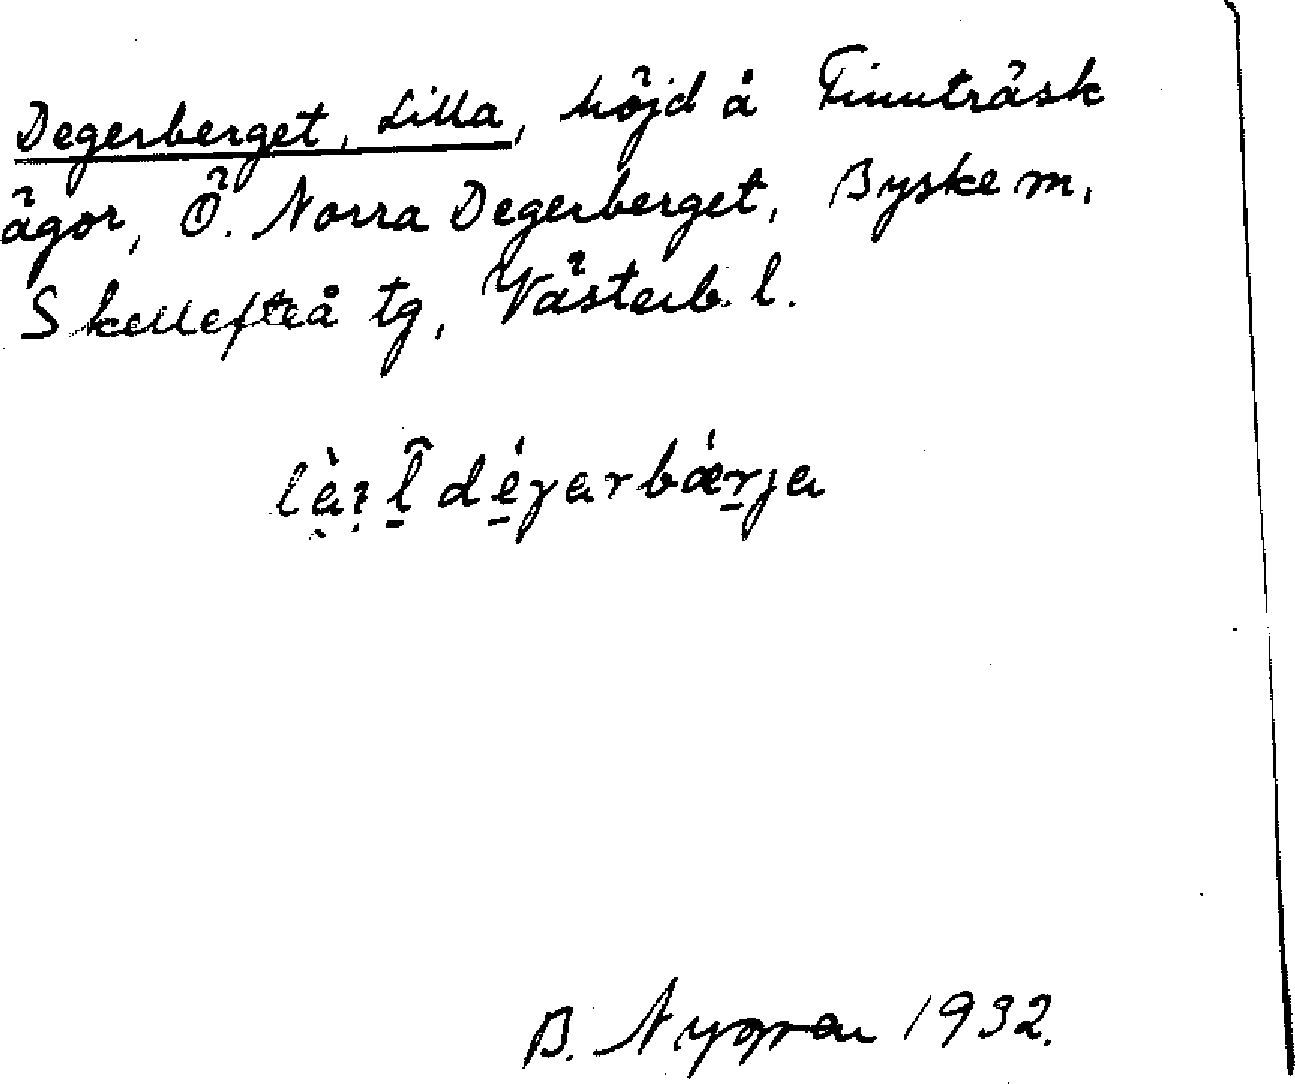 Degerberget, Lilla, höjd å Finnträsk
ägor, Ö. Norra Degerberget, Byske m,
Skellefteå tg, Västerb. l.
B. Nygren 1932.